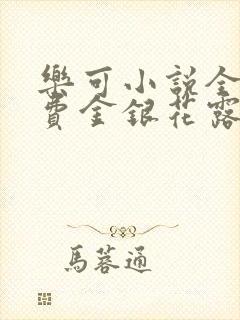 樂可小說全
費金銀花露
馬蓉通